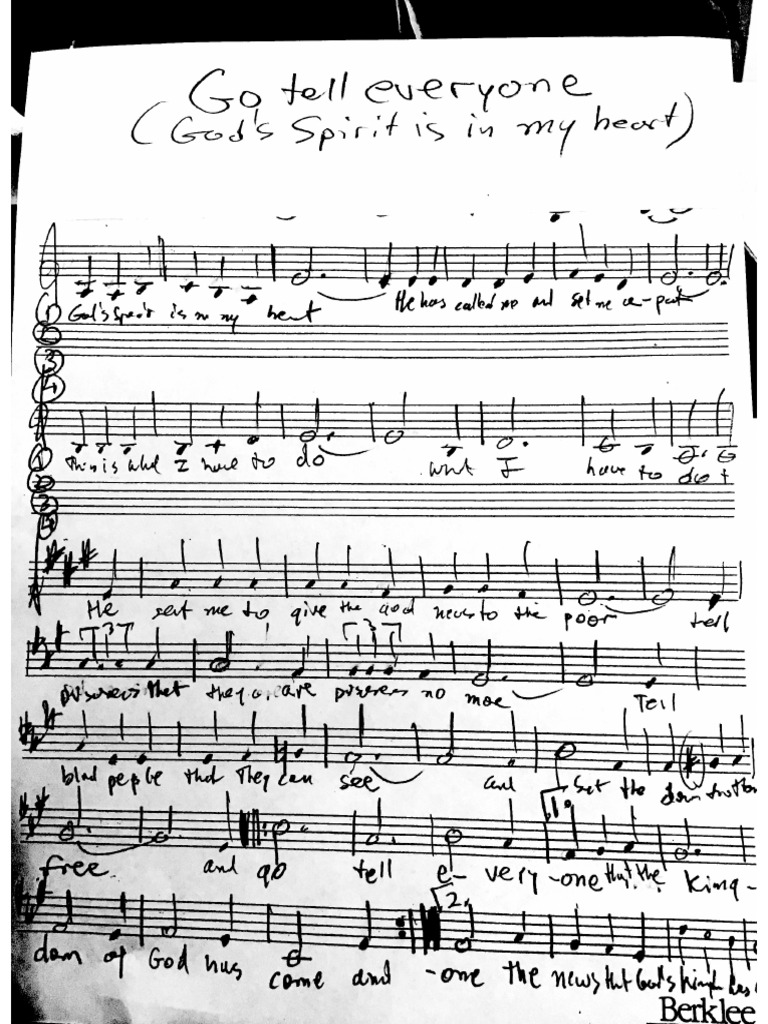 Go tell everyone
(God's Spirit is in my heart)
God's Spirit is in my heart He has called me and set me a-part
1
2
3
4
This is what I have to do what I have to do
1
2
3
4
He sent me to give the Good news to the poor tell
3 3
prisoners that they are prisoners no more Tell
blind people that they can see and set the down trodden
1.
free and go tell e- very -one that the King-
2.
dom of God has come and -one the news that God's has
Berklee